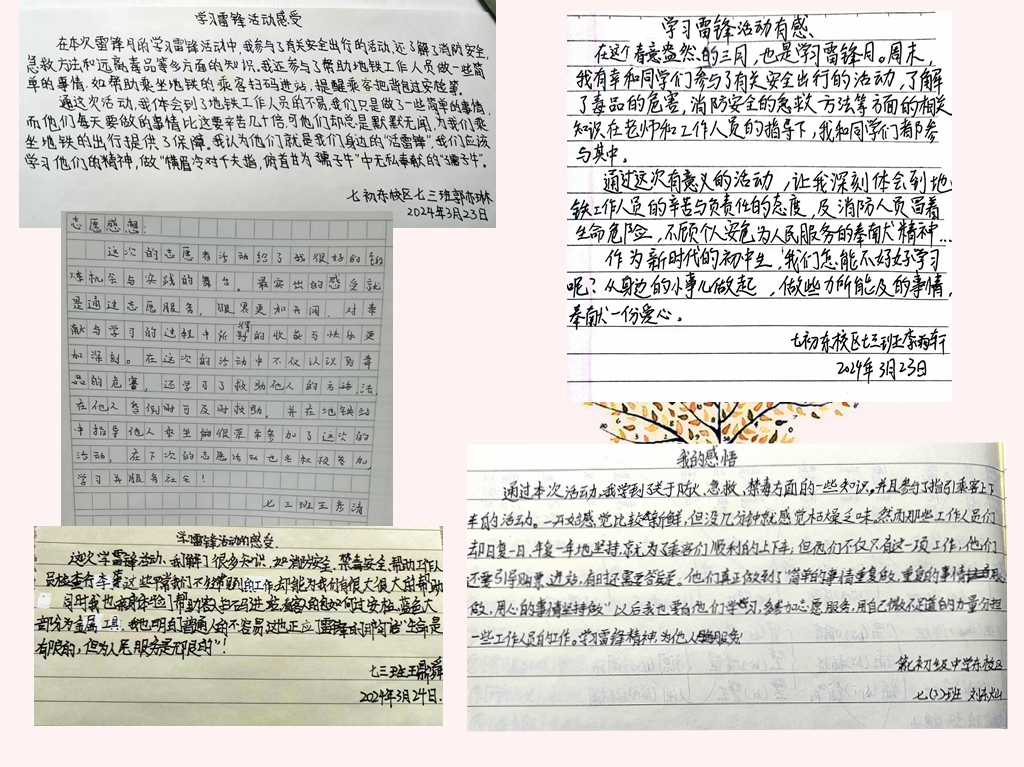 学习雷锋活动感受
在本次雷锋月的学习雷锋活动中,我参与了有关安全出行的活动,还了解了消防安全,
急救方法和远离毒品等多方面的知识。我还参与了帮助地铁工作人员做一些简
单的事情,如帮助乘坐地铁的乘客扫码进站,提醒乘客把背包过安检等。
通过这次活动,我体会到了地铁工作人员的不易,我们只是做了一些简单的事情,
而他们每天要做的事情比这要辛苦几十倍,可他们却总是默默无闻,为我们乘
坐地铁的出行提供了保障。我认为他们就是我们身边的“活雷锋”,我们应该
学习他们的精神,做“横眉冷对千夫指,俯首甘为孺子牛”中无私奉献的“孺子牛”。
七初东校区七三班郭亦琳
2024年3月23日
志愿感想:
这次的志愿者活动给了我很好的锻
炼机会与实践的舞台。最突出的感受就
是通过志愿服务,眼界更加开阔,对奉
献与学习的过程中所得到的收获与快乐更
加深刻。在这次的活动中不仅认识到毒
品的危害,还学习了救助他人的方法,
在他人晕倒时可及时救助,并在地铁站
中指导他人乘坐 很荣幸参加了这次的
活动,在下次的志愿活动也会积极参加,
学习并服务社会!
七三班王彦清
学雷锋活动的感受
这次学雷锋活动,我了解了很多知识,如消防安全,禁毒安全,帮助工作人
员检查行车 这些平常我们不经常见到的工作,却能为我们有很大很大的帮助
同时我也 帮助客人扫码进站, 如何过安检,蓝色大
为金属工具,我也明白了普通人的不容易,这也正应了雷锋 “生命是
有限的,但为人民服务是无限的”!
七三班王鼎舜
2024年3月24日.
学习雷锋活动有感、
在这个春意盎然的三月,也是学习雷锋月。周末,
我有幸和同学们参与了有关安全出行的活动,了解
了毒品的危害,消防安全的急救方法等方面的相关
知识在老师和工作人员的指导下,我和同学们都参
与其中。
通过这次有意义的活动,让我深刻体会到地
铁工作人员的辛苦与负责任的态度,及消防人员冒着
生命危险,不顾个人安危为人民服务的奉献精神...
作为新时代的初中生,我们怎能不好好学习
呢?从身边的小事儿做起,做些力所能及的事情,
奉献一份爱心。
七初东校区七三班李雨轩
2024年3月23日
我的感悟
通过本次活动,我学到了关于防火、急救、禁毒方面的一些知识。并且参与了指引乘客上下
车的活动。一开始感觉比较新鲜,但没几分钟就感觉枯燥乏味,然而那些工作人员们
却日复一日,年复一年地坚持就为了乘客们顺利的上下车,但他们不仅只有这一项工作,他们
还要引导购票,进站,有时还需要答疑。他们真正做到了“简单的事情重复做,重复的事情
做,用心的事情坚持做”以后我也要向他们学习,多参加志愿服务,用自己微不足道的力量分担
一些工作人员的工作。学习雷锋精神,为他人服务
第七初级中学东校区
七(3)班 刘东灿